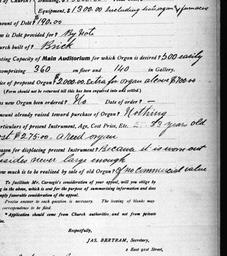 Equipment, $1300.00 Excluding
ount of Debt? $190.00
is Debt provided for? By Note
urch built of? Brick
ating Capacity of Main Auditorium for which Organ is desired? 500 easily
omprising 360 on floor and 140 in Gallery.
ice of proposed Organ? $2,000.00 Extra for organ alone $700.00
(Form should not be returned till this has been ascertained.)
new Organ been ordered? No Date of order? —
mount already raised toward purchase of Organ? Nothing
articulars of present Instrument, Age, Cost Price, Etc. year old
cost $275.00. A reed organ.
eason for displacing present Instrument? Because it is worn out
esides never large enough
ow much is to be realized by sale of old Organ? Of no commercial value
To facilitate Mr. Carnegie's consideration of your appeal, will you oblige by
ing in the above, which is sent for the purpose of summarizing information and does
imply favorable consideration of the appeal.
Precise answer to each question is necessary. The leaving of blanks may
correspondence to be filed.
"Application should come from Church authorities and not from private
Respectfully,
JAS. BERTRAM, Secretary,
2 East 91st Street,